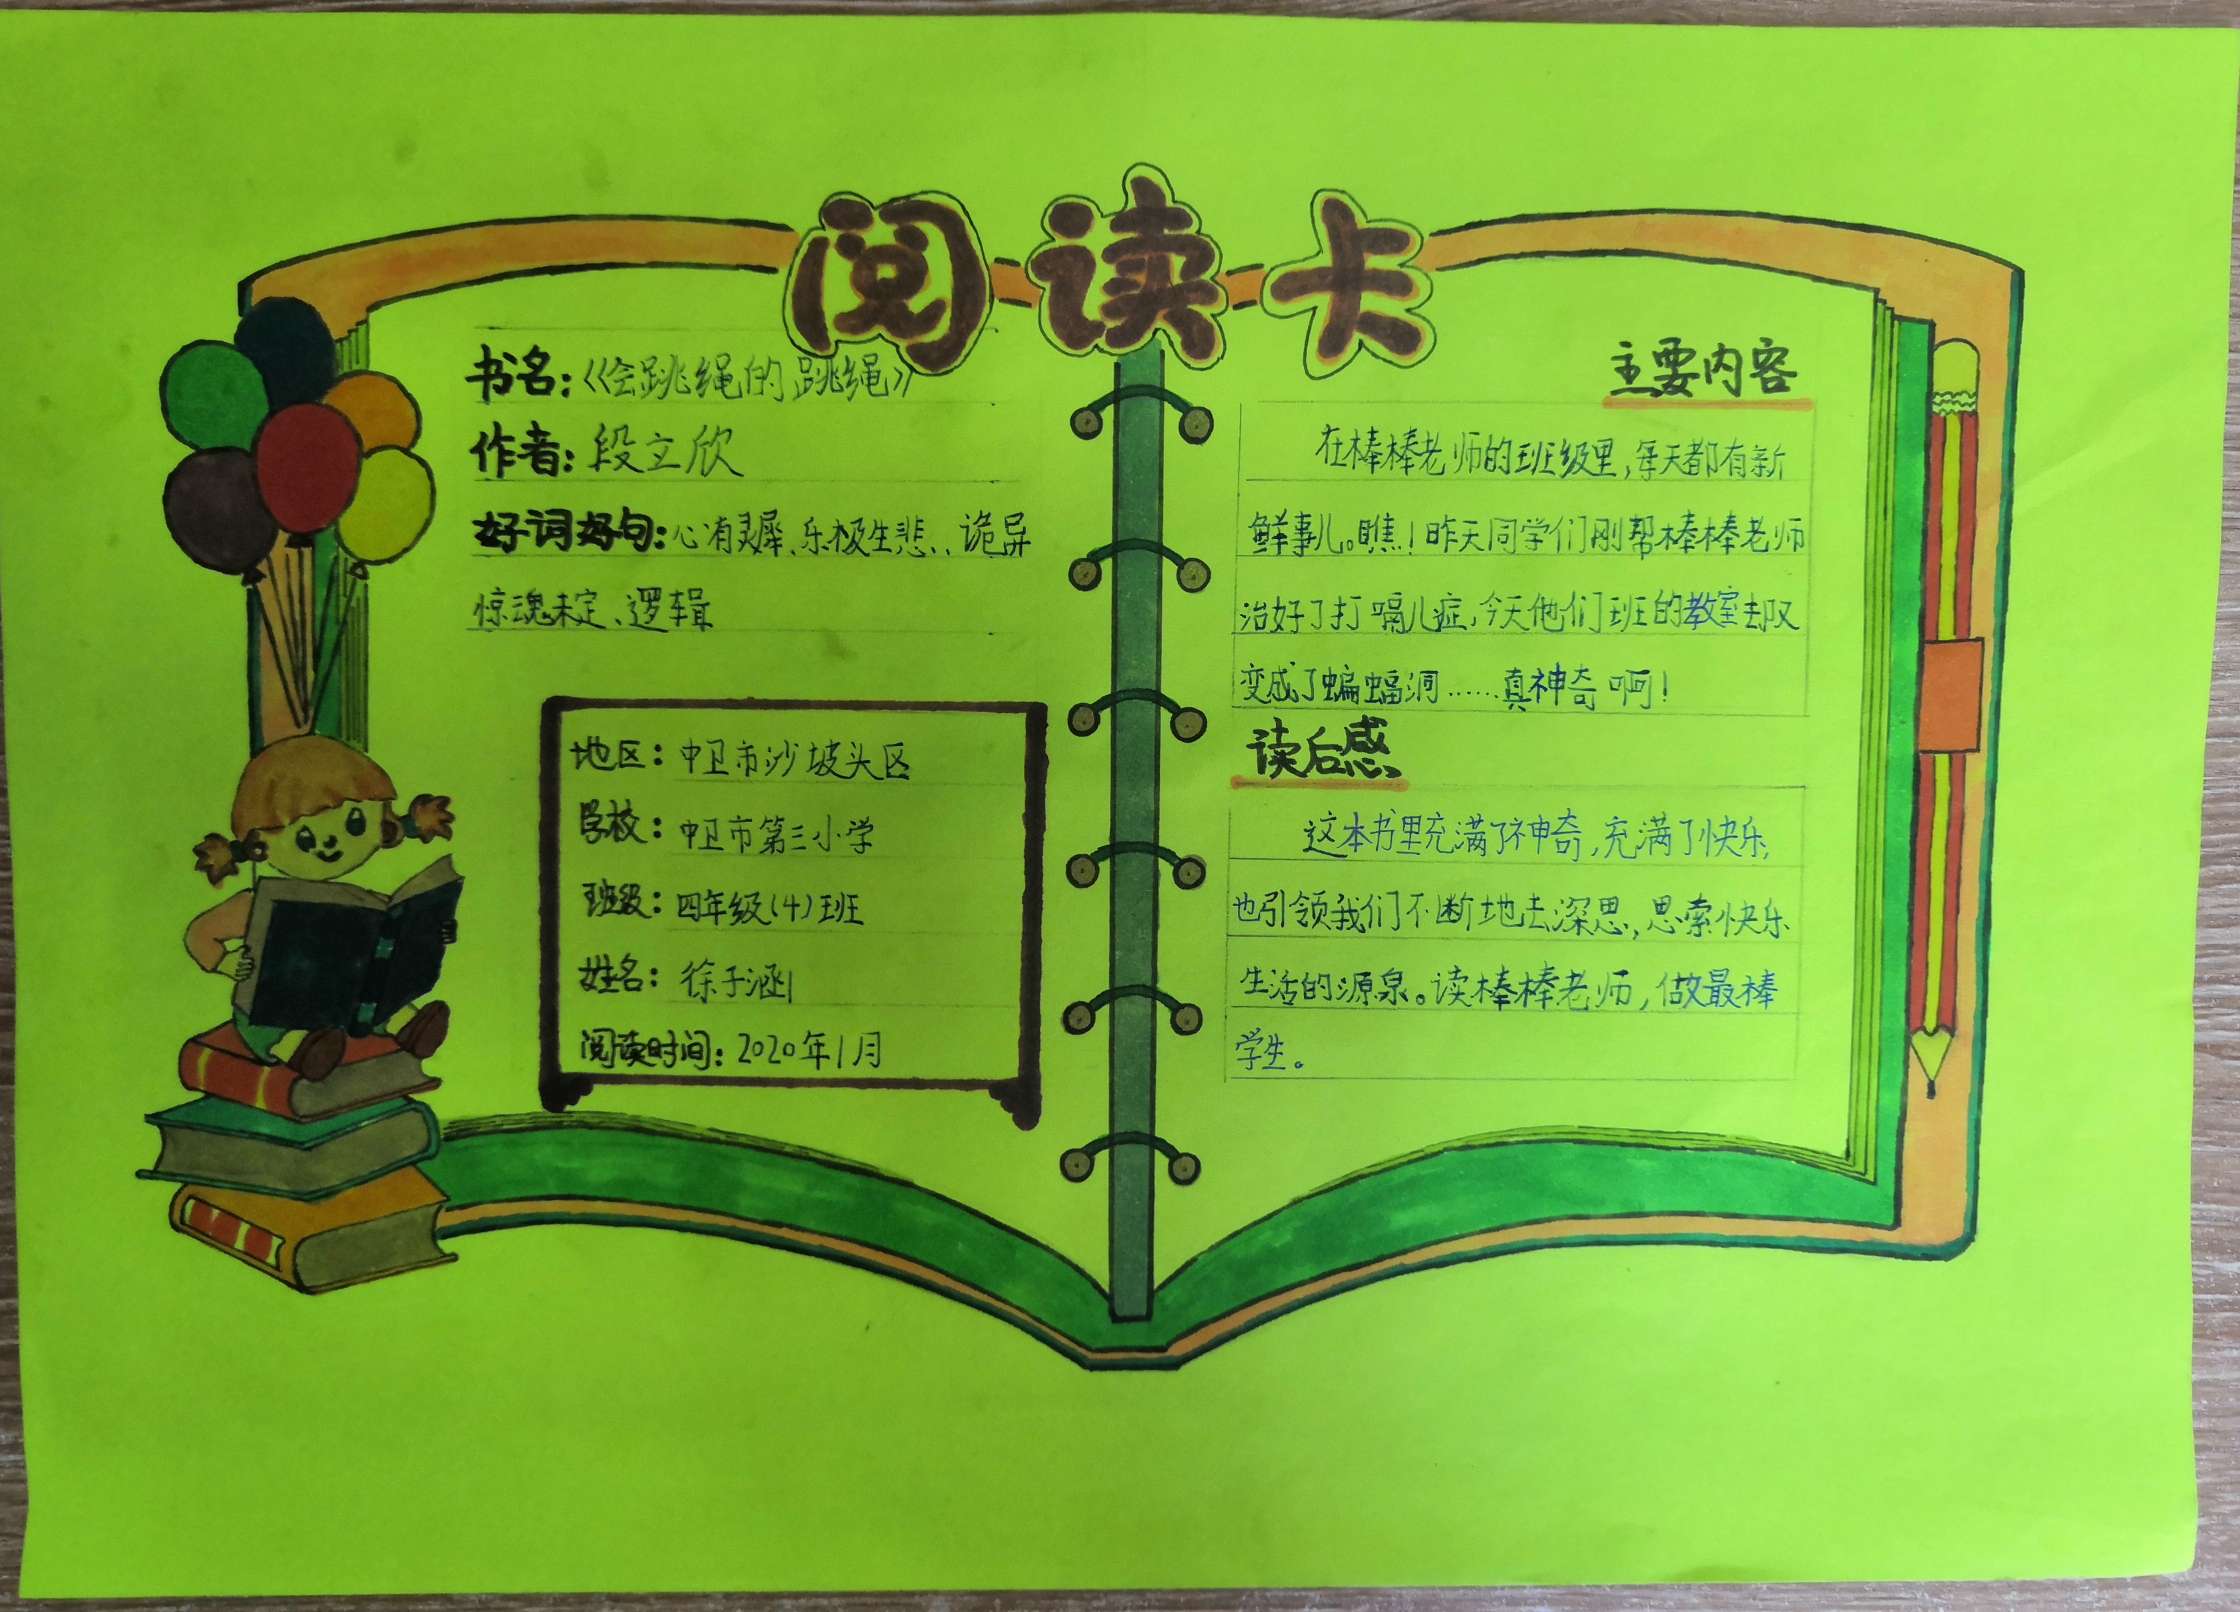 阅读卡
书名:《会跳绳的跳绳》
作者:段立欣
好词好句:心有灵犀、乐极生悲、、诡异
惊魂未定、逻辑
地区:中卫市沙坡头区
学校:中卫市第三小学
班级:四年级(4)班
姓名:徐子涵
阅读时间:2020年1月
主要内容
在棒棒老师的班级里,每天都有新
鲜事儿。瞧!昨天同学们刚帮棒棒老师
治好了打嗝儿症,今天他们班的教室却又
变成了蝙蝠洞……真神奇啊!
读后感
这本书里充满了神奇,充满了快乐,
也引领我们不断地去深思,思索快乐
生活的源泉。读棒棒老师,做最棒
学生。